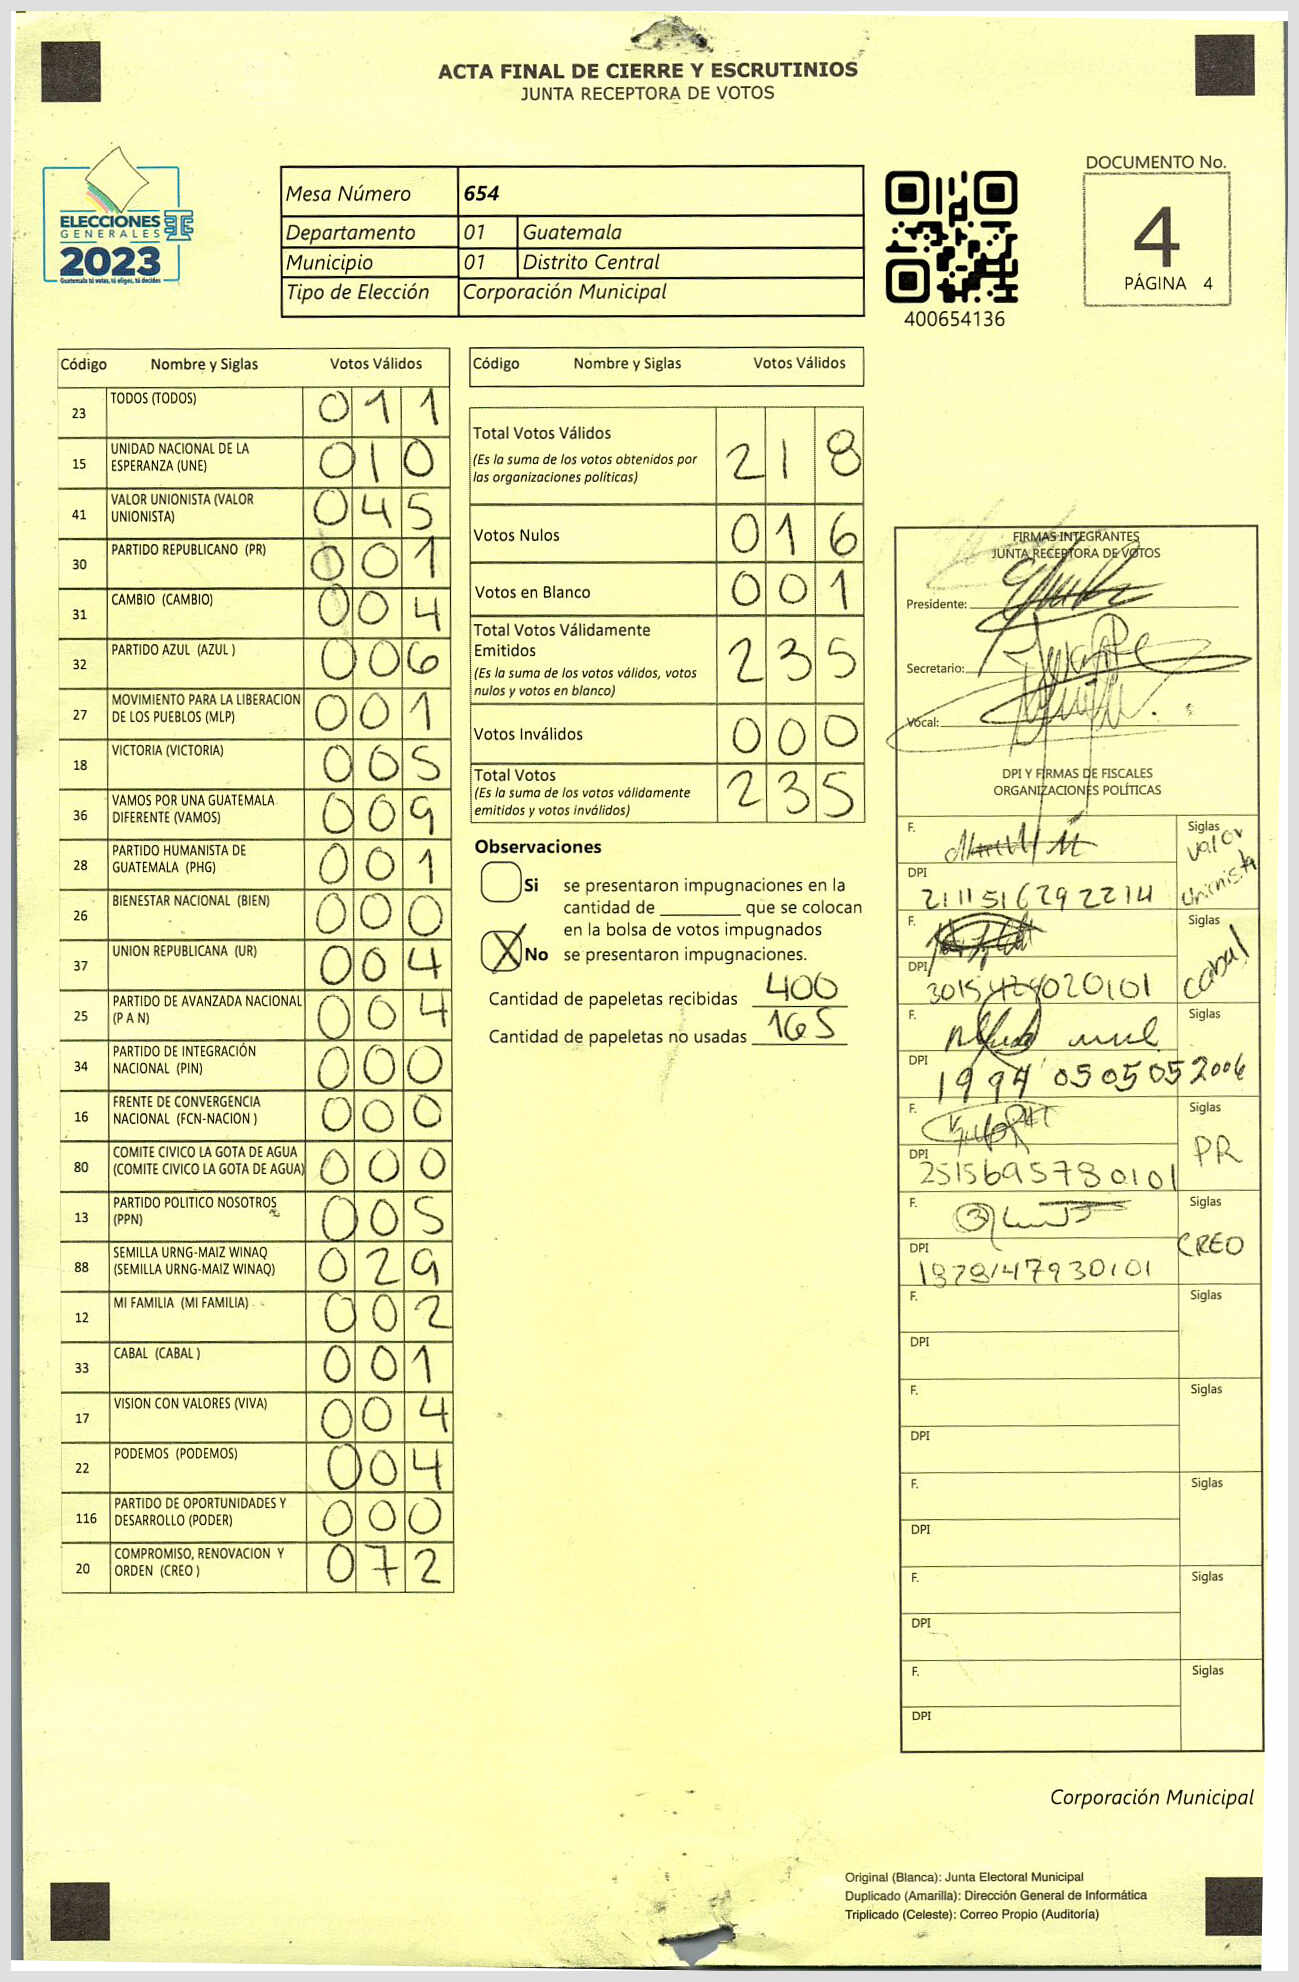 ACTA FINAL DE CIERRE Y ESCRUTINIOS
JUNTA RECEPTORA DE VOTOS
ELECCIONES
GENERALES
2023
Guatemala tú votas, tú eliges, tú decides
Mesa Número 654
Departamento 01 Guatemala
Municipio 01 Distrito Central
Tipo de Elección Corporación Municipal
400654136
DOCUMENTO No.
4
PÁGINA 4
Código Nombre y Siglas Votos Válidos
23 TODOS (TODOS) 011
15 UNIDAD NACIONAL DE LA ESPERANZA (UNE) 010
41 VALOR UNIONISTA (VALOR UNIONISTA) 045
30 PARTIDO REPUBLICANO (PR) 001
31 CAMBIO (CAMBIO) 004
32 PARTIDO AZUL (AZUL ) 006
27 MOVIMIENTO PARA LA LIBERACION DE LOS PUEBLOS (MLP) 001
18 VICTORIA (VICTORIA) 005
36 VAMOS POR UNA GUATEMALA DIFERENTE (VAMOS) 009
28 PARTIDO HUMANISTA DE GUATEMALA (PHG) 001
26 BIENESTAR NACIONAL (BIEN) 000
37 UNION REPUBLICANA (UR) 004
25 PARTIDO DE AVANZADA NACIONAL (P A N) 004
34 PARTIDO DE INTEGRACIÓN NACIONAL (PIN) 000
16 FRENTE DE CONVERGENCIA NACIONAL (FCN-NACION ) 000
80 COMITE CIVICO LA GOTA DE AGUA (COMITE CIVICO LA GOTA DE AGUA) 000
13 PARTIDO POLITICO NOSOTROS (PPN) 005
88 SEMILLA URNG-MAIZ WINAQ (SEMILLA URNG-MAIZ WINAQ) 029
12 MI FAMILIA (MI FAMILIA) 002
33 CABAL (CABAL ) 001
17 VISION CON VALORES (VIVA) 004
22 PODEMOS (PODEMOS) 004
116 PARTIDO DE OPORTUNIDADES Y DESARROLLO (PODER) 000
20 COMPROMISO, RENOVACION Y ORDEN (CREO ) 072
Código Nombre y Siglas Votos Válidos
Total Votos Válidos 218
(Es la suma de los votos obtenidos por
las organizaciones políticas)
Votos Nulos 016
Votos en Blanco 001
Total Votos Válidamente
Emitidos 235
(Es la suma de los votos válidos, votos
nulos y votos en blanco)
Votos Inválidos 000
Total Votos 235
(Es la suma de los votos válidamente
emitidos y votos inválidos)
Observaciones
Si se presentaron impugnaciones en la
cantidad de ________ que se colocan
en la bolsa de votos impugnados
X No se presentaron impugnaciones.
Cantidad de papeletas recibidas 400
Cantidad de papeletas no usadas 165
FIRMAS INTEGRANTES
JUNTA RECEPTORA DE VOTOS
Presidente:
Secretario:
Vocal:
DPI Y FIRMAS DE FISCALES
ORGANIZACIONES POLÍTICAS
F. Siglas valor unionista
DPI 2111516292214
F. Siglas cabal
DPI
F. Siglas
DPI 1994 05050 52006
F. Siglas PR
DPI 2515695780101
F. Siglas CREO
DPI 1878147930101
F. Siglas
DPI
F. Siglas
DPI
F. Siglas
DPI
F. Siglas
DPI
F. Siglas
DPI
Corporación Municipal
Original (Blanca): Junta Electoral Municipal
Duplicado (Amarilla): Dirección General de Informática
Triplicado (Celeste): Correo Propio (Auditoría)